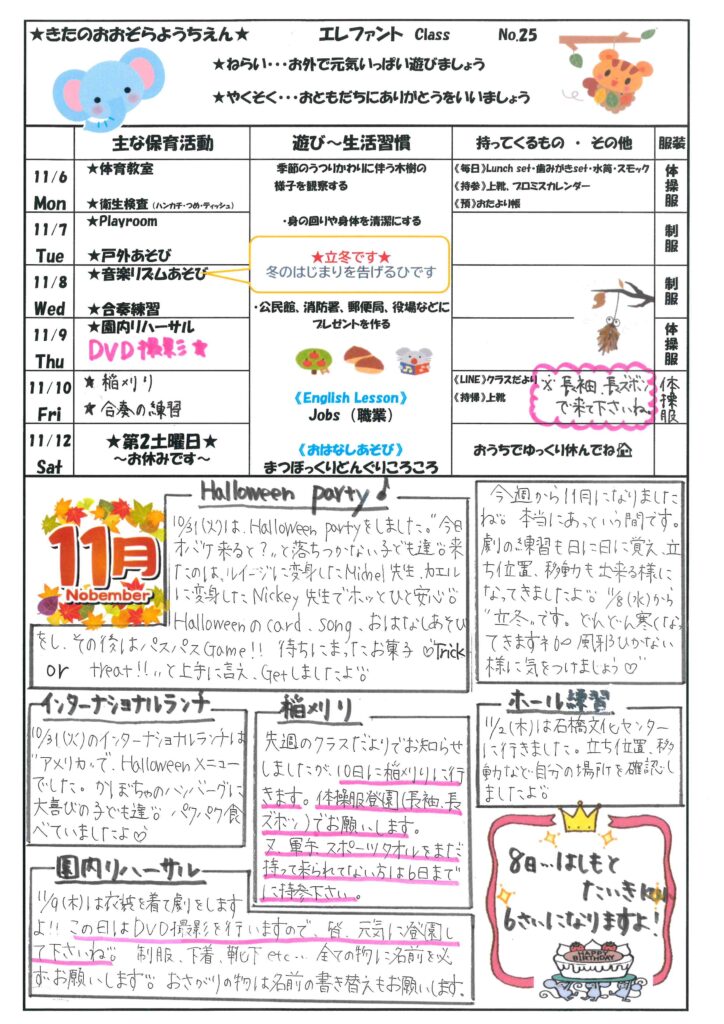 ★きたのおおぞらようちえん★　エレファント Class　No.25
★ねらい・・・お外で元気いっぱい遊びましょう
★やくそく・・・おともだちにありがとうをいいましょう
主な保育活動　遊び～生活習慣　持ってくるもの ・ その他　服装
11/6
Mon
★体育教室
★衛生検査（ハンカチ・つめ・ティッシュ）
季節のうつりかわりに伴う木樹の
様子を観察する
《毎日》Lunch set・歯みがきset・水筒・スモック
《持参》上靴、プロミスカレンダー
《預》おたより帳
体操服
11/7
Tue
★Playroom
★戸外あそび
・身の回りや身体を清潔にする
制服
★立冬です★
冬のはじまりを告げるひです
11/8
Wed
★音楽リズムあそび
★合奏練習
・公民館、消防署、郵便局、役場などに
プレゼントを作る
制服
11/9
Thu
★園内リハーサル
DVD撮影★
体操服
11/10
Fri
★ 稲メリリ
★ 合奏の練習
《English Lesson》
Jobs （職業）
《LINE》クラスだより
《持帰》上靴
※長袖、長ズボン
で来て下さいね。
体操服
11/12
Sat
★第2土曜日★
～お休みです～
《おはなしあそび》
まつぼっくりどんぐりころころ
おうちでゆっくり休んでね
11月
Nobember
Halloween party♪
10/31(火)は、Halloween partyをしました。“今日
オバケ来ると？”と落ちつかない子ども達。来
たのは、ルイージに変身したMichel先生、カエル
に変身したNickey先生でホッとひと安心。
Halloweenのcard、song、おはなしあそび
をし、その後はパスパスGame!! 待ちにまったお菓子♡“Trick
or treat!!”と上手に言え、Getしましたよ。
今週から11月になりました
ね。本当にあっという間です。
劇の練習も日に日に覚え、立
ち位置、移動も出来る様に
なってきましたよ。11/8(水)から
“立冬”です。どんどん寒くなっ
てきますネ。風邪ひかない
様に気をつけましょう♡
インターナショナルランチ
10/31(火)のインターナショナルランチは
“アメリカ”で、Halloweenメニュー
でした。かぼちゃのハンバーグに
大喜びの子ども達。パクパク食
べていましたよ♡
稲メリリ
先週のクラスだよりでお知らせ
しましたが、10日に稲メリリに行
きます。体操服登園(長袖、長
ズボン)でお願いします。
又、軍手、スポーツタオルをまだ
持って来られてない方は6日まで
に持参下さい。
ホール練習
11/2(木)は石橋文化センター
に行きました。立ち位置、移
動など自分の場所を確認し
ましたよ。
園内リハーサル
11/9(木)は衣装を着て劇をします
よ!! この日はDVD撮影を行いますので、皆、元気に登園し
て下さいね。 制服、下着、靴下 etc… 全ての物に名前を必
ずお願いします。おさがりの物は名前の書き替えもお願いします。
8日…はしもと
たいきkun
6さいになりますよ!
HAPPY
BIRTHDAY